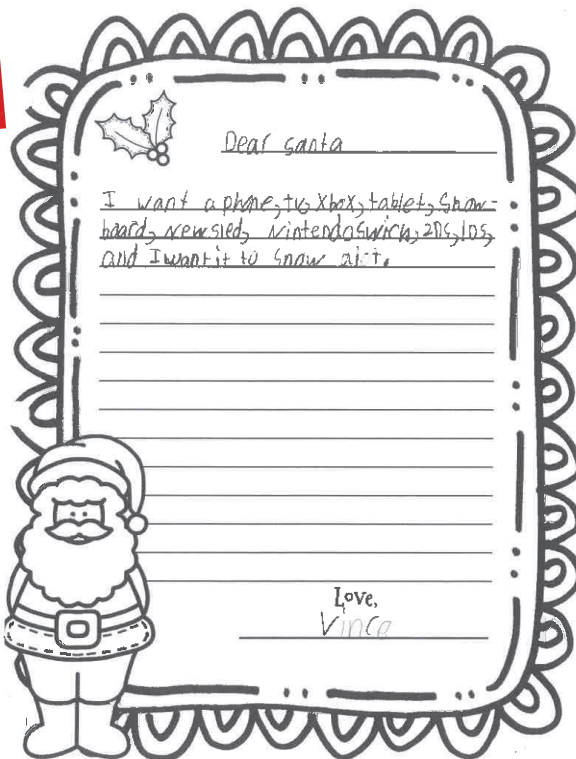 Dear santa
I want a phone, tv, Xbox, tablet, Snow-
board, new sled, Nintendo Swich, 2Ds, 1Ds,
and I want it to snow alot.
Love,
Vince